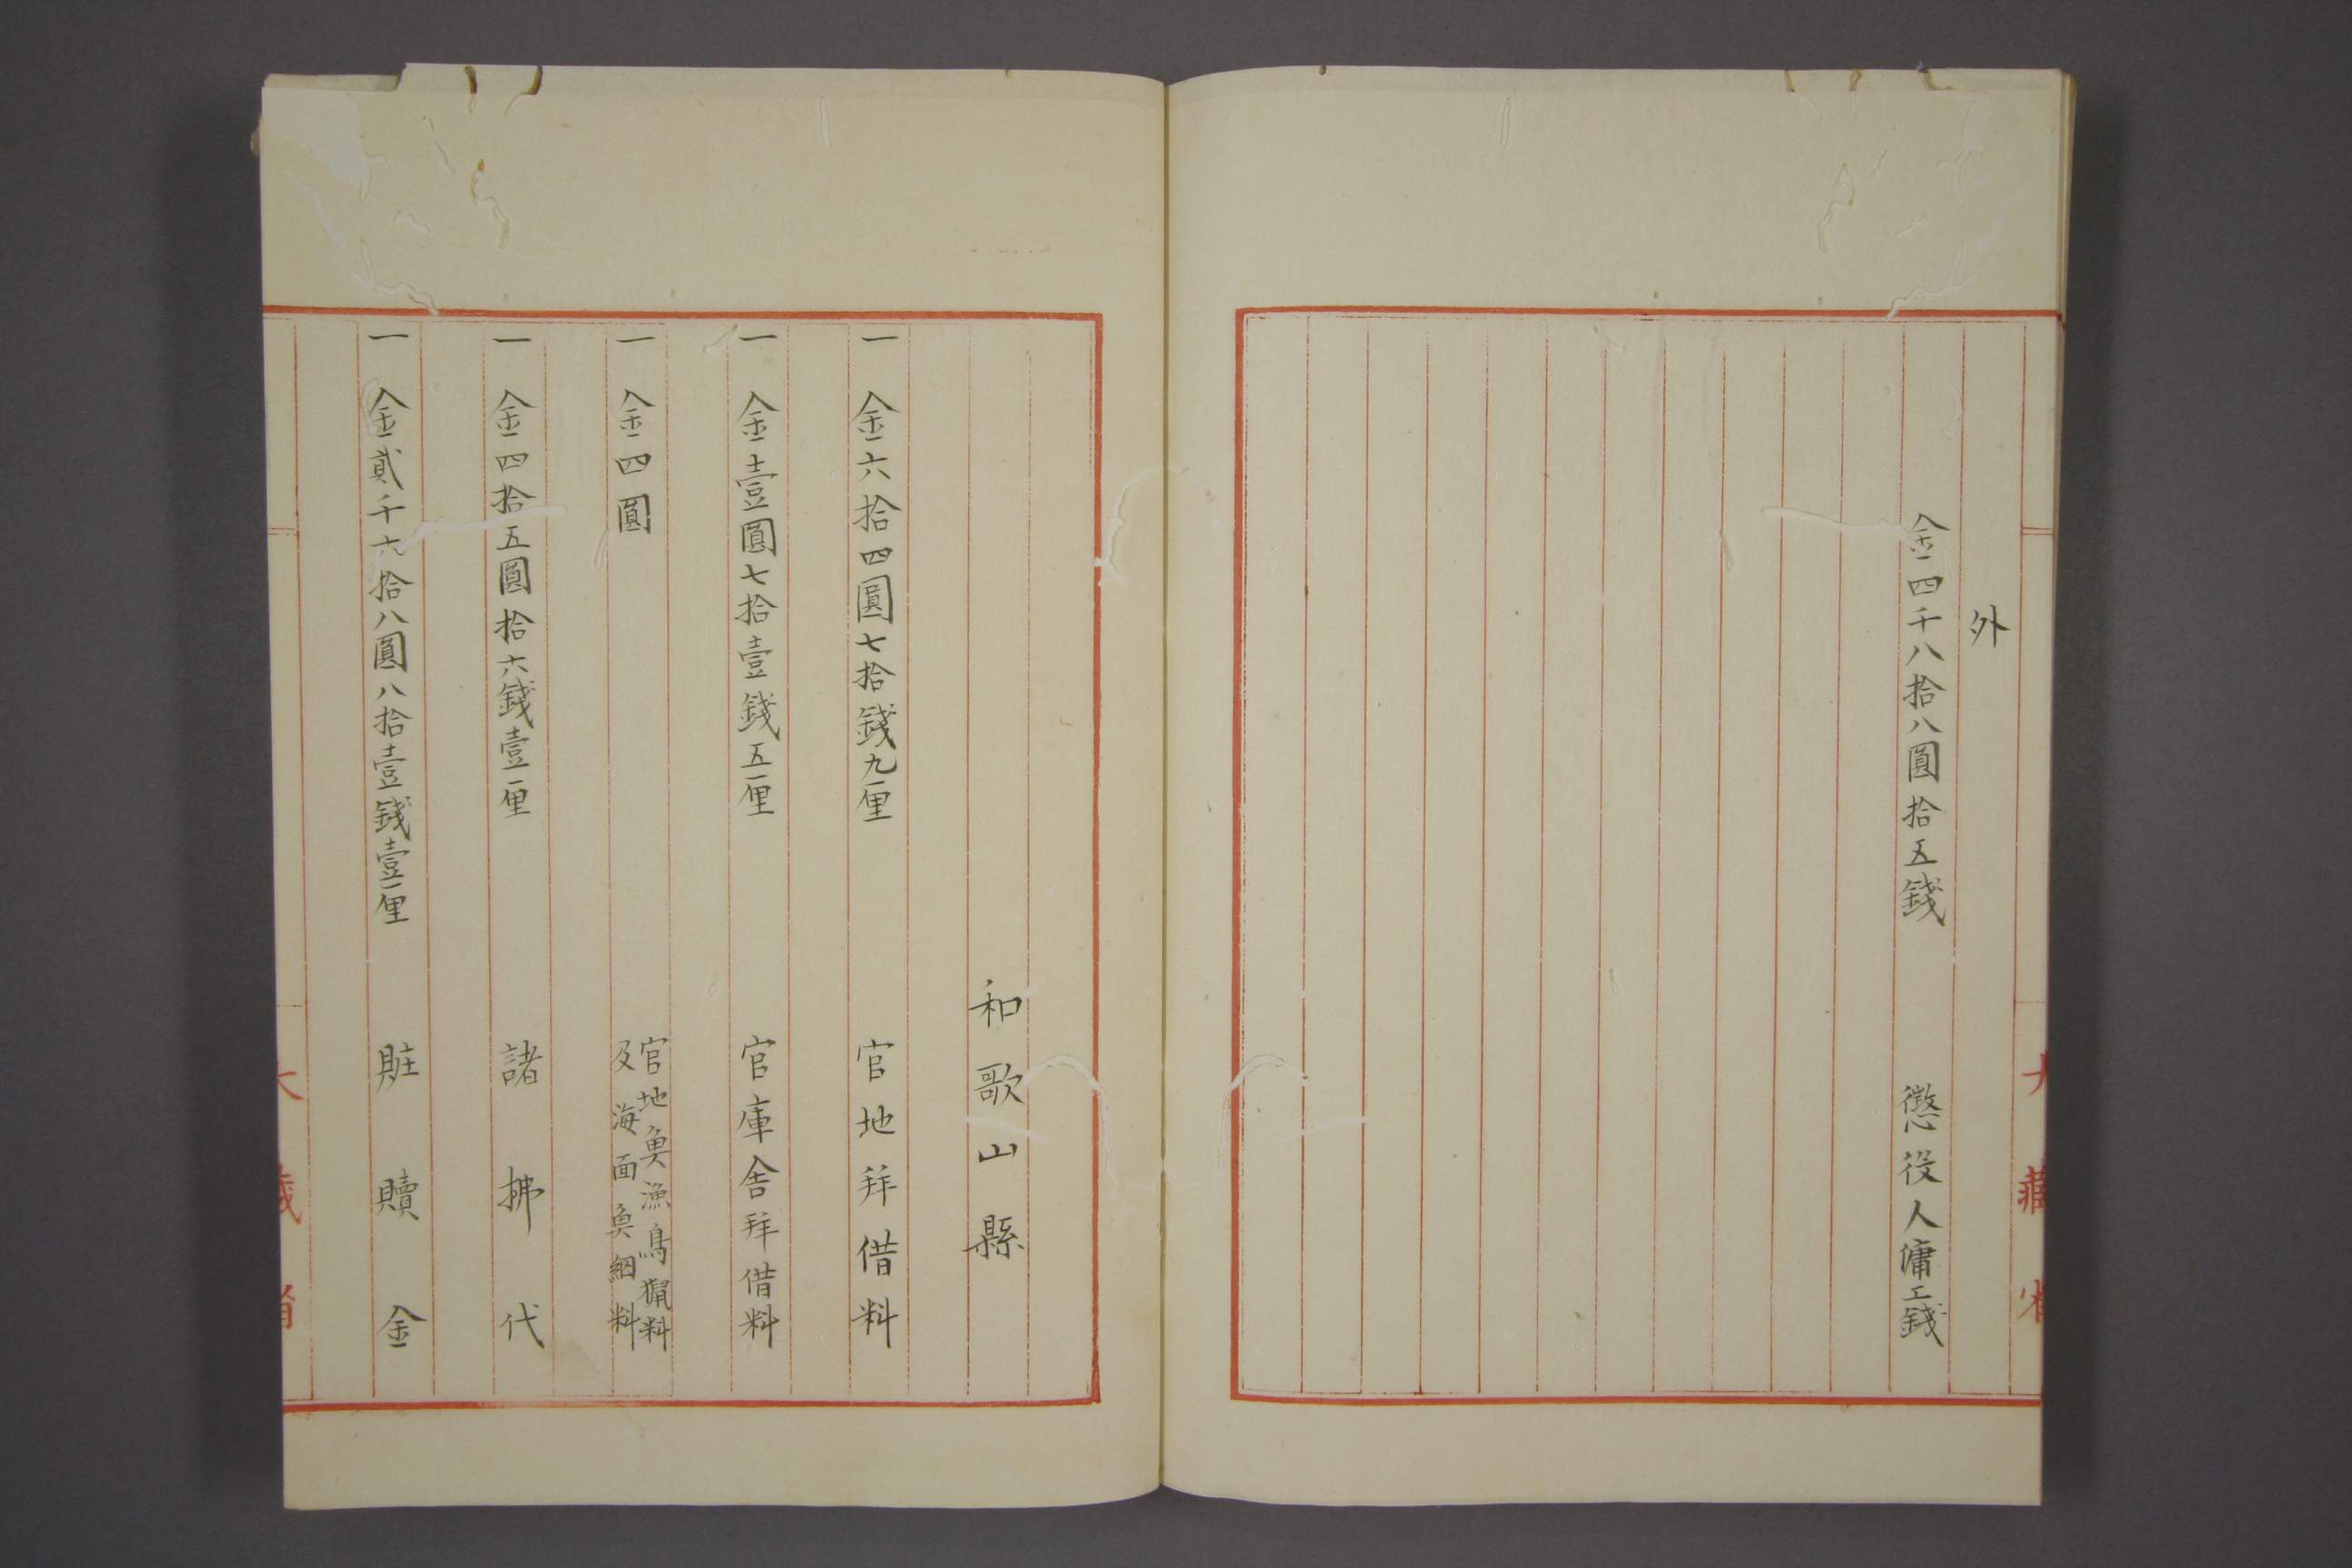 外
金四千八拾八圓拾五錢 懲役人傭工錢
大藏省
和歌山縣
一 金六拾四圓七拾錢九厘 官地拜借料
一 金壹圓七拾壹錢五厘 官庫舍拜借料
一 金四圓 官地魚漁鳥獵料
及海面魚網料
一 金四拾五圓拾六錢壹厘 諸拂代
一 金貳千六拾八圓八拾壹錢壹厘 賍贖金
大藏省